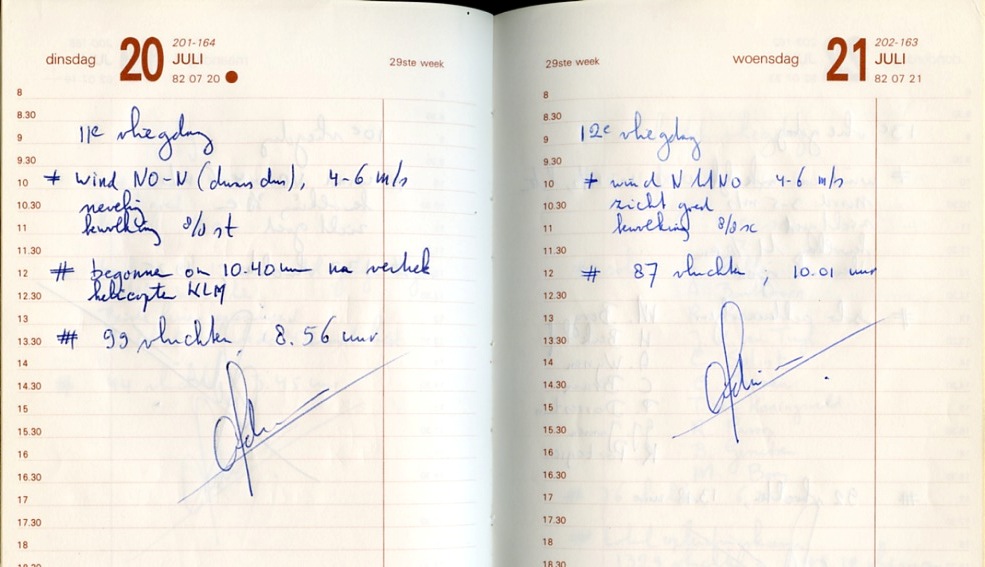 dinsdag 20 201-164
JULI
82 07 20
29ste week
8
8.30
9
9.30
10
10.30
11
11.30
12
12.30
13
13.30
14
14.30
15
15.30
16
16.30
17
17.30
18
18.30
11e vliegdag
* wind NO-N (dwars dus), 4-6 m/s
nevelig
bewolking 8/8 st
# begonnen om 10.40 uur na vertrek
helicopter KLM
# 99 vluchten, 8.56 uur
29ste week
woensdag 21 202-163
JULI
82 07 21
8
8.30
9
9.30
10
10.30
11
11.30
12
12.30
13
13.30
14
14.30
15
15.30
16
16.30
17
17.30
18
18.30
12e vliegdag
* wind N NNO 4-6 m/s
zicht goed
bewolking 8/8 sc
# 87 vluchten, 10.01 uur